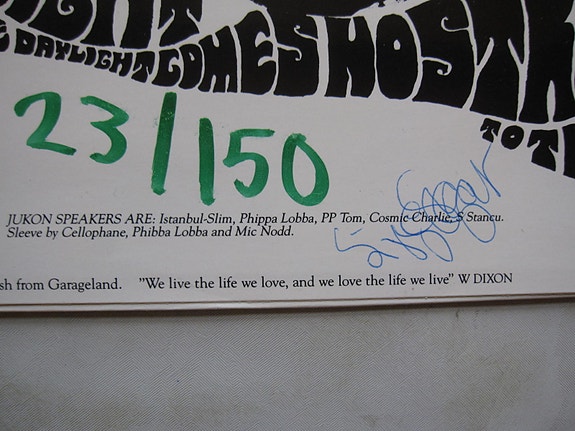 DAYLIGHT COMES NOST
TO T
23/150
JUKON SPEAKERS ARE: Istanbul-Slim, Phippa Lobba, PP Tom, Cosmic Charlie, S Stancu.
Sleeve by Cellophane, Phibba Lobba and Mic Nodd.
sh from Garageland. "We live the life we love, and we love the life we live" W DIXON